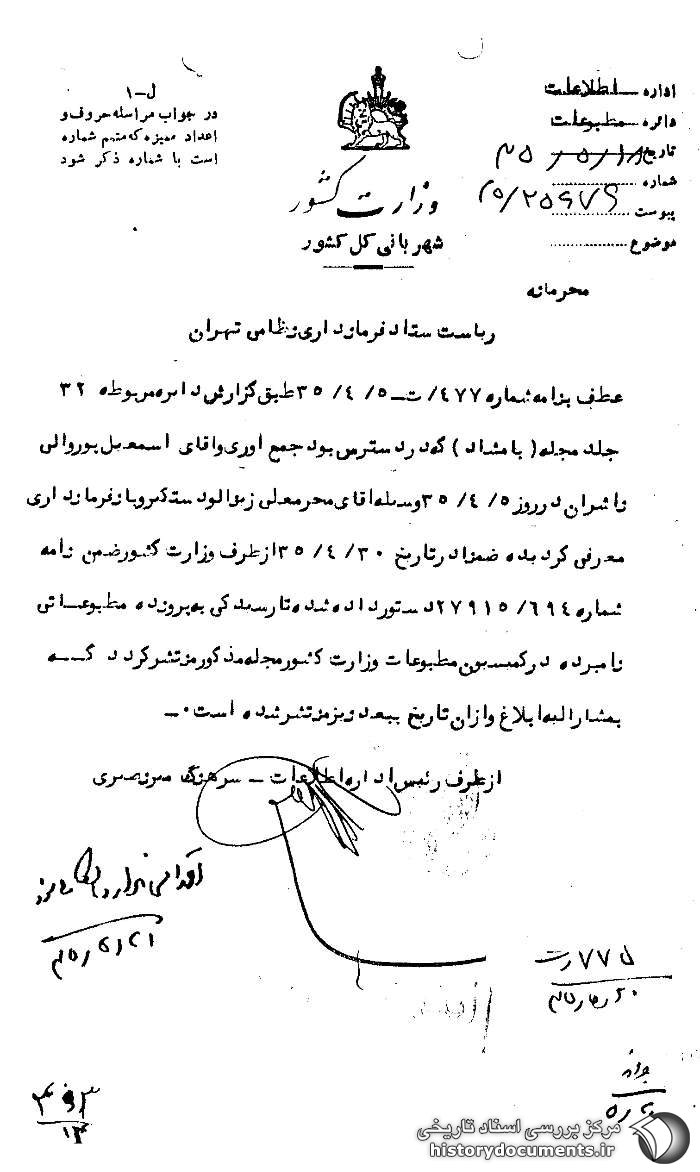 اداره اطلاعات
دائره مطبوعات
تاریخ ۳۵/۵/۱۸
شماره
پیوست ۵/۲۵۶۷۶
موضوع
ل-۱
در جواب مراسله حروف و
اعداد ممیزه که متمم شماره
است با شماره ذکر شود
وزارت کشور
شهربانی کل کشور
محرمانه
ریاست ستاد فرمانداری نظامی تهران
عطف بنامه شماره ۴۷۷/ت-۳۵/۴/۵ طبق گزارش دایره مربوطه ۳۲
جلد مجله (بامشاد) که در دسترس بود جمع اوری واقای اسمعیل پوروالی
ناشران در روز ۳۵/۴/۵ وسیله اقای محرمعلی زینالو دستگیر و بانفرمانداری
معرفی گردیده ضمنا در تاریخ ۳۵/۴/۳۰ از طرف وزارت کشور ضمن نامه
شماره ۲۷۹۱۵/۶۹۴ دستور داده شده تا رسیدگی به پرونده مطبوعاتی
نامبرده در کمیسیون مطبوعات وزارت کشور مجله مذکور منتشر گردد که
بمشارالیه ابلاغ وازان تاریخ ببعد نیز منتشر شده است ۰-
از طرف رئیس اداره اطلاعات - سرهنگ
اقدامی ندارد
۷۷۵/ت
۴۹۳
۱۳
مرکز بررسی اسناد تاریخی
historydocuments.ir